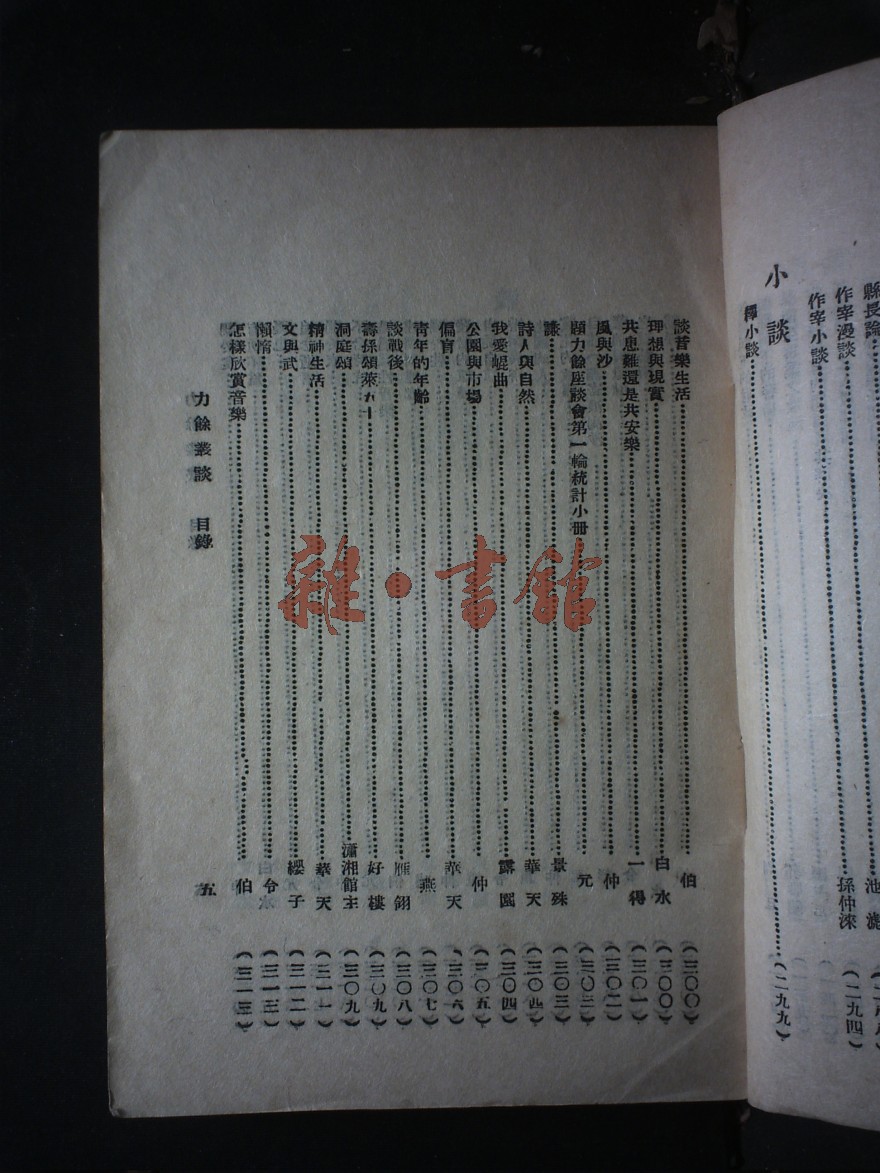 縣長論
作宰漫談 孫仲淶 (二九四)
作宰小談
小談
釋小談 (二九九)
談音樂生活 伯 (三〇〇)
理想與現實 白水 (三〇〇)
共患難還是共安樂 一得 (三〇一)
風與沙 仲 (三〇二)
題力餘座談會第一輪統計小冊 元 (三〇三)
謙 景殊 (三〇三)
詩人與自然 華天 (三〇四)
我愛崐曲 露園 (三〇四)
公園與市場 仲 (三〇五)
偏盲 華天 (三〇六)
青年的年齡 燕 (三〇七)
談戰後 雁翎 (三〇八)
壽孫頌萊九十 好樓 (三〇九)
洞庭頌 瀟湘館主 (三〇九)
精神生活 華天 (三一一)
文與武 纓子 (三一二)
懶惰 令 (三一三)
怎樣欣賞音樂 伯 (三一三)
力餘叢談 目錄 五
雜·書館